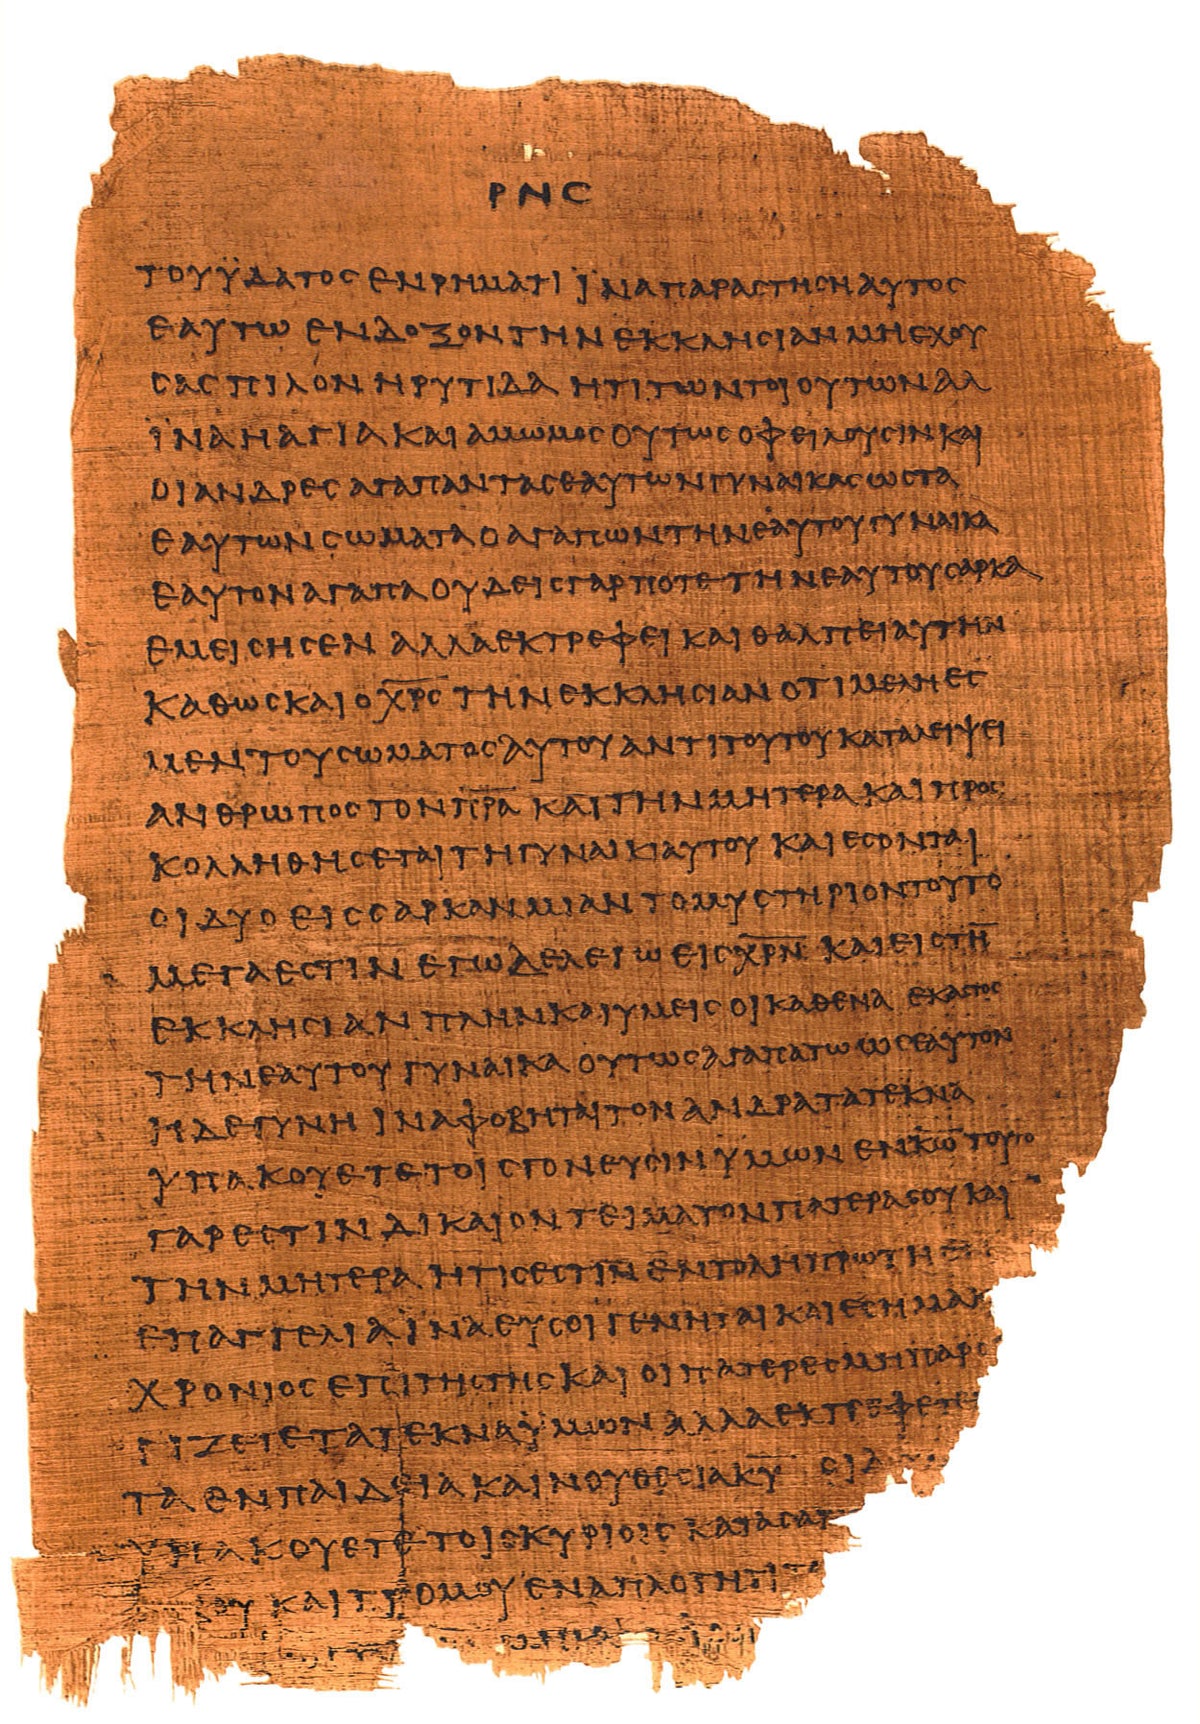 ΡΝϹ
ΤΟΥ ΫΔΑΤΟϹ ΕΝ ΡΗΜΑΤΙ ΪΝΑ ΠΑΡΑϹΤΗϹΗ ΑΥΤΟϹ
ΕΑΥΤΩ ΕΝΔΟΞΟΝ ΤΗΝ ΕΚΚΛΗϹΙΑΝ ΜΗ ΕΧΟΥ
ϹΑϹΠΙΛΟΝ Η ΡΥΤΙΔΑ Η ΤΙ ΤΩΝ ΤΟΙΟΥΤΩΝ ΑΛ
ΪΝΑ Η ΑΓΙΑ ΚΑΙ ΑΜΩΜΟϹ ΟΥΤΩϹ ΟΦΕΙΛΟΥϹΙΝ ΚΑΙ
ΟΙ ΑΝΔΡΕϹ ΑΓΑΠΑΝ ΤΑϹ ΕΑΥΤΩΝ ΓΥΝΑΙΚΑϹ ΩϹ ΤΑ
ΕΑΥΤΩΝ ϹΩΜΑΤΑ Ο ΑΓΑΠΩΝ ΤΗΝ ΕΑΥΤΟΥ ΓΥΝΑΙΚΑ
ΕΑΥΤΟΝ ΑΓΑΠΑ ΟΥΔΕΙϹ ΓΑΡ ΠΟΤΕ ΤΗΝ ΕΑΥΤΟΥ ϹΑΡΚΑ
ΕΜΕΙϹΗϹΕΝ ΑΛΛΑ ΕΚΤΡΕΦΕΙ ΚΑΙ ΘΑΛΠΕΙ ΑΥΤΗΝ
ΚΑΘΩϹ ΚΑΙ Ο Χ̅Ρ̅Ϲ̅ ΤΗΝ ΕΚΚΛΗϹΙΑΝ ΟΤΙ ΜΕΛΗ ΕϹ
ΜΕΝ ΤΟΥ ϹΩΜΑΤΟϹ ΑΥΤΟΥ ΑΝΤΙ ΤΟΥΤΟΥ ΚΑΤΑΛΕΙΨΕΙ
ΑΝΘΡΩΠΟϹ ΤΟΝ Π̅Ρ̅Α̅ ΚΑΙ ΤΗΝ ΜΗΤΕΡΑ ΚΑΙ ΠΡΟϹ
ΚΟΛΛΗΘΗϹΕΤΑΙ ΤΗ ΓΥΝΑΙΚΙ ΑΥΤΟΥ ΚΑΙ ΕϹΟΝΤΑΙ
ΟΙ ΔΥΟ ΕΙϹ ϹΑΡΚΑΝ ΜΙΑΝ ΤΟ ΜΥϹΤΗΡΙΟΝ ΤΟΥΤΟ
ΜΕΓΑ ΕϹΤΙΝ ΕΓΩ ΔΕ ΛΕΓΩ ΕΙϹ Χ̅Ρ̅Ν̅ ΚΑΙ ΕΙϹ ΤΗ̅
ΕΚΚΛΗϹΙΑΝ ΠΛΗΝ ΚΑΙ ΥΜΕΙϹ ΟΙ ΚΑΘ ΕΝΑ ΕΚΑϹΤΟϹ
ΤΗΝ ΕΑΥΤΟΥ ΓΥΝΑΙΚΑ ΟΥΤΩϹ ΑΓΑΠΑΤΩ ΩϹ ΕΑΥΤΟΝ
Η ΔΕ ΓΥΝΗ ΙΝΑ ΦΟΒΗΤΑΙ ΤΟΝ ΑΝΔΡΑ ΤΑ ΤΕΚΝΑ
ΥΠΑΚΟΥΕΤΕ ΤΟΙϹ ΓΟΝΕΥϹΙΝ ΫΜΩΝ ΕΝ Κ̅Ω̅ ΤΟΥΤΟ
ΓΑΡ ΕϹΤΙΝ ΔΙΚΑΙΟΝ ΤΕΙΜΑ ΤΟΝ ΠΑΤΕΡΑ ϹΟΥ ΚΑΙ
ΤΗΝ ΜΗΤΕΡΑ ΗΤΙϹ ΕϹΤΙΝ ΕΝΤΟΛΗ ΠΡΩΤΗ
ΕΠΑΓΓΕΛΙΑ ΪΝΑ ΕΥ ϹΟΙ ΓΕΝΗΤΑΙ ΚΑΙ ΕϹΗ ΜΑΚ
ΧΡΟΝΙΟϹ ΕΠΙ ΤΗϹ ΓΗϹ ΚΑΙ ΟΙ ΠΑΤΕΡΕϹ ΜΗ ΠΑΡΟ
ΓΙΖΕΤΕ ΤΑ ΤΕΚΝΑ ΫΜΩΝ ΑΛΛΑ ΕΚΤΡΕΦΕΤΕ
ΤΑ ΕΝ ΠΑΙΔΕΙΑ ΚΑΙ ΝΟΥΘΕϹΙΑ Κ̅Υ̅ ΟΙ Δ
ΥΠΑΚΟΥΕΤΕ ΤΟΙϹ ΚΥΡΙΟΙϹ ΚΑΤΑ ϹΑΡ
ΟΥ ΚΑΙ ΤΡΟΜΟΥ ΕΝ ΑΠΛΟΤΗΤΙ Τ